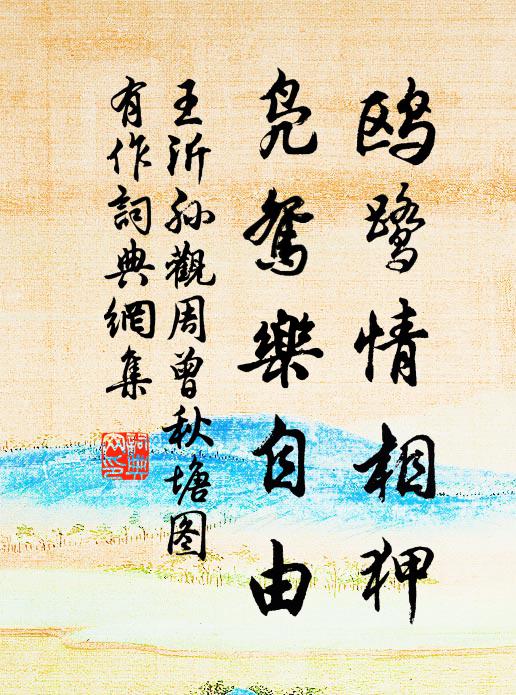 鸥鹭情相狎
凫鴐樂自由
王沂孙觀周曾秋塘图
有作詞典網集